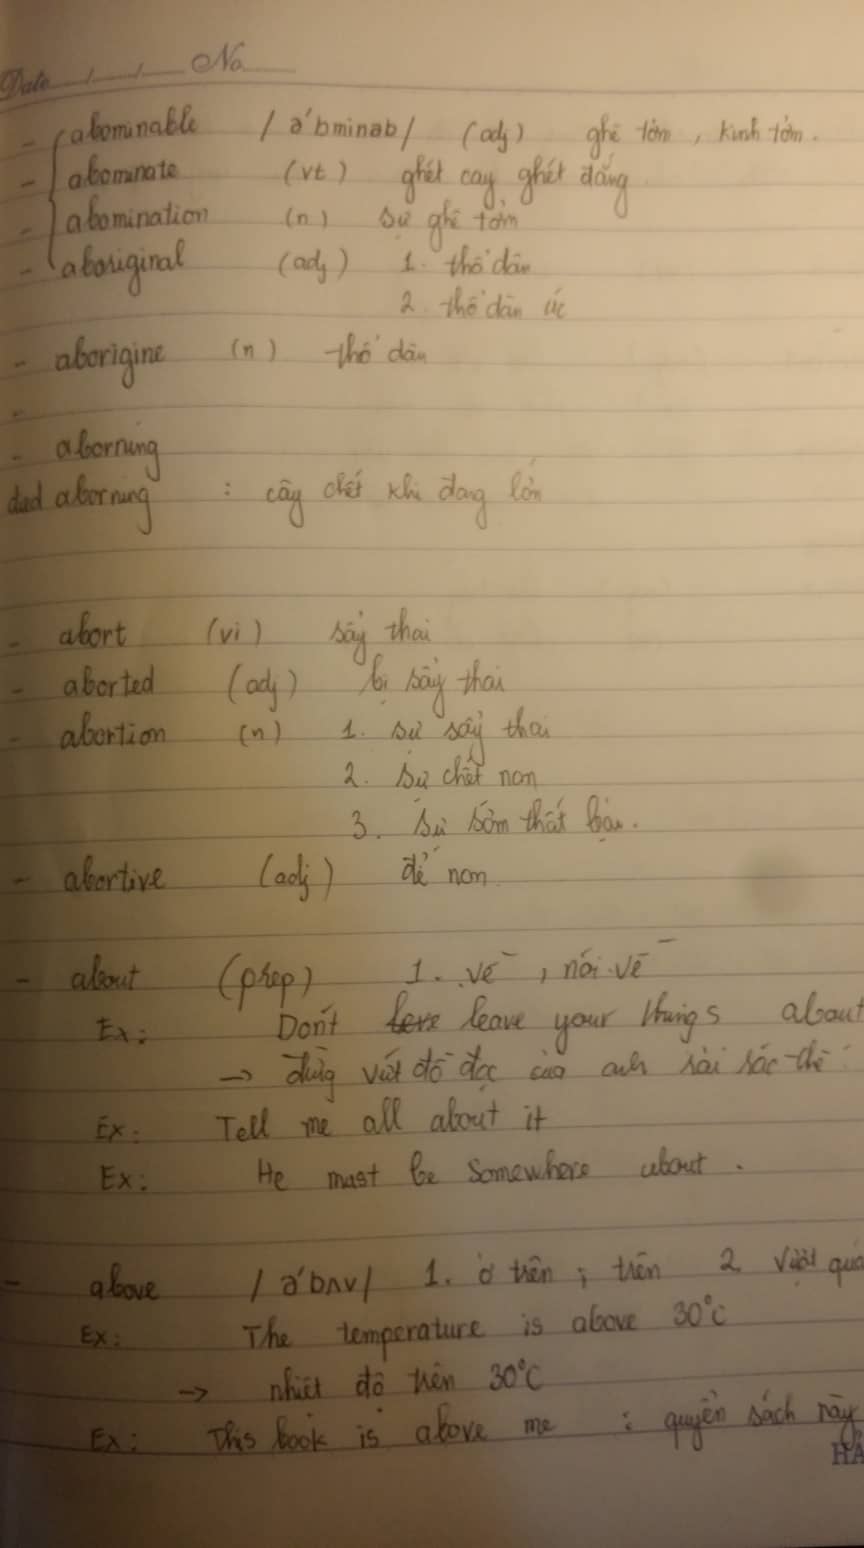 Date / / No
- abominable /ə'bminəb/ (adj) ghê tởm, kinh tởm.
- abominate (vt) ghét cay ghét đắng
- abomination (n) sự ghê tởm
- aboriginal (adj) 1. thổ dân
2. thổ dân úc
- aborigine (n) thổ dân
-
- aborning
died aborning : cây chết khi đang lớn
- abort (vi) sảy thai
- aborted (adj) bị sảy thai
- abortion (n) 1. sự sảy thai
2. sự chết non
3. sự sớm thất bại.
- abortive (adj) đẻ non
- about (prep) 1. về, nói về
Ex: Don't leve leave your things about
→ đừng vứt đồ đạc của anh rải rác thế
Ex: Tell me all about it
Ex: He mast be somewhere about.
- above /ə'bʌv/ 1. ở trên; trên 2 vượt quá
Ex: The temperature is above 30°C
→ nhiệt độ trên 30°C
Ex: This book is above me : quyển sách này
HẢ